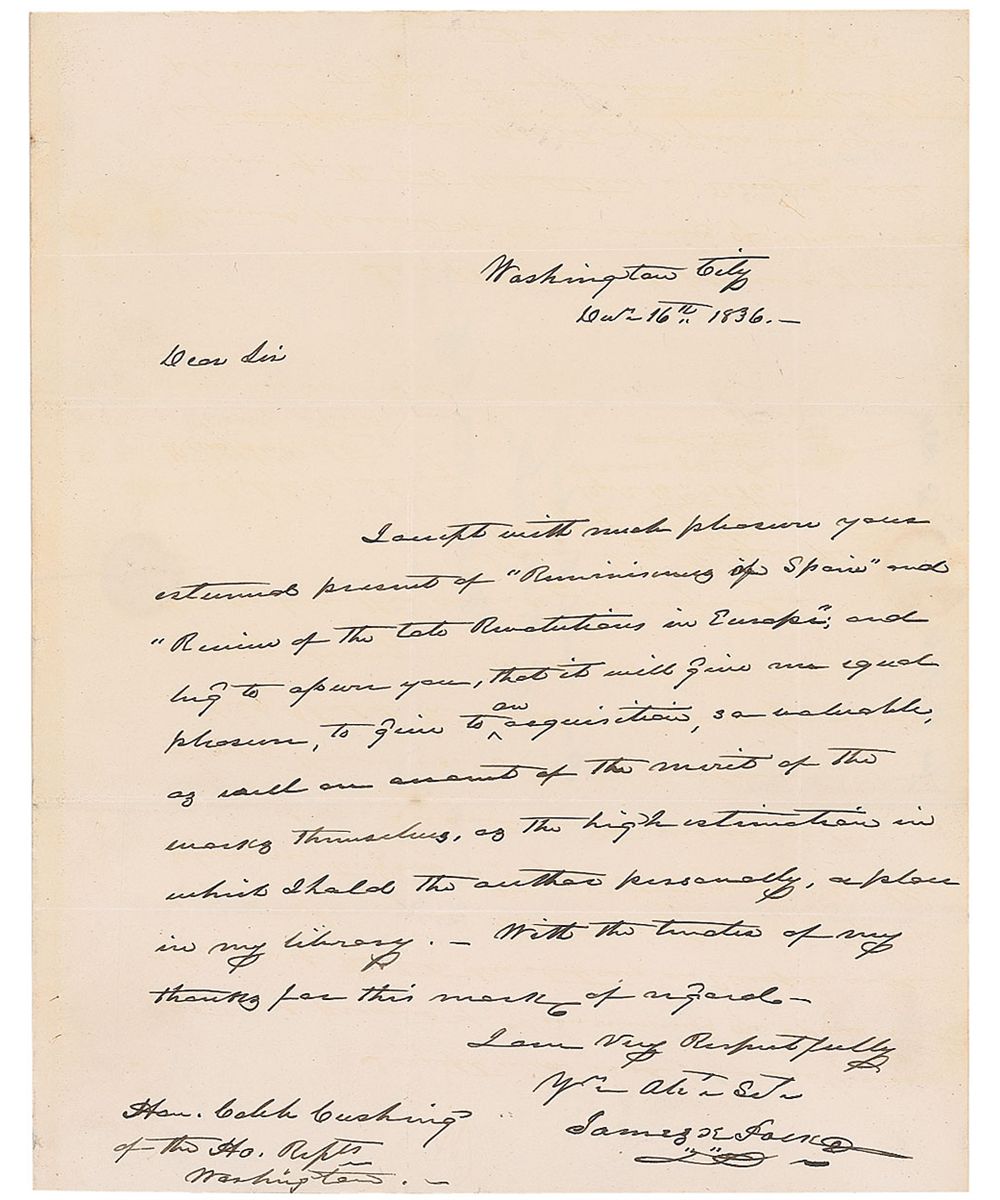 Washington City
Decr 16th 1836. —
Dear Sir
I accept with much pleasure your
esteemed present of "Reminiscences of Spain" and
"Review of the late Revolutions in Europe"; and
beg to assure you, that it will give me equal
pleasure, to give to an acquisition, so valuable,
as well on account of the merit of the
works themselves, as the high estimation in
which I hold the author personally, a place
in my library. — With the tender of my
thanks for this mark of regard —
I am Very Respectfully
Yr Obt Sevt
James K. Polk
Hon. Caleb Cushing
of the Ho. Repts
Washington. —